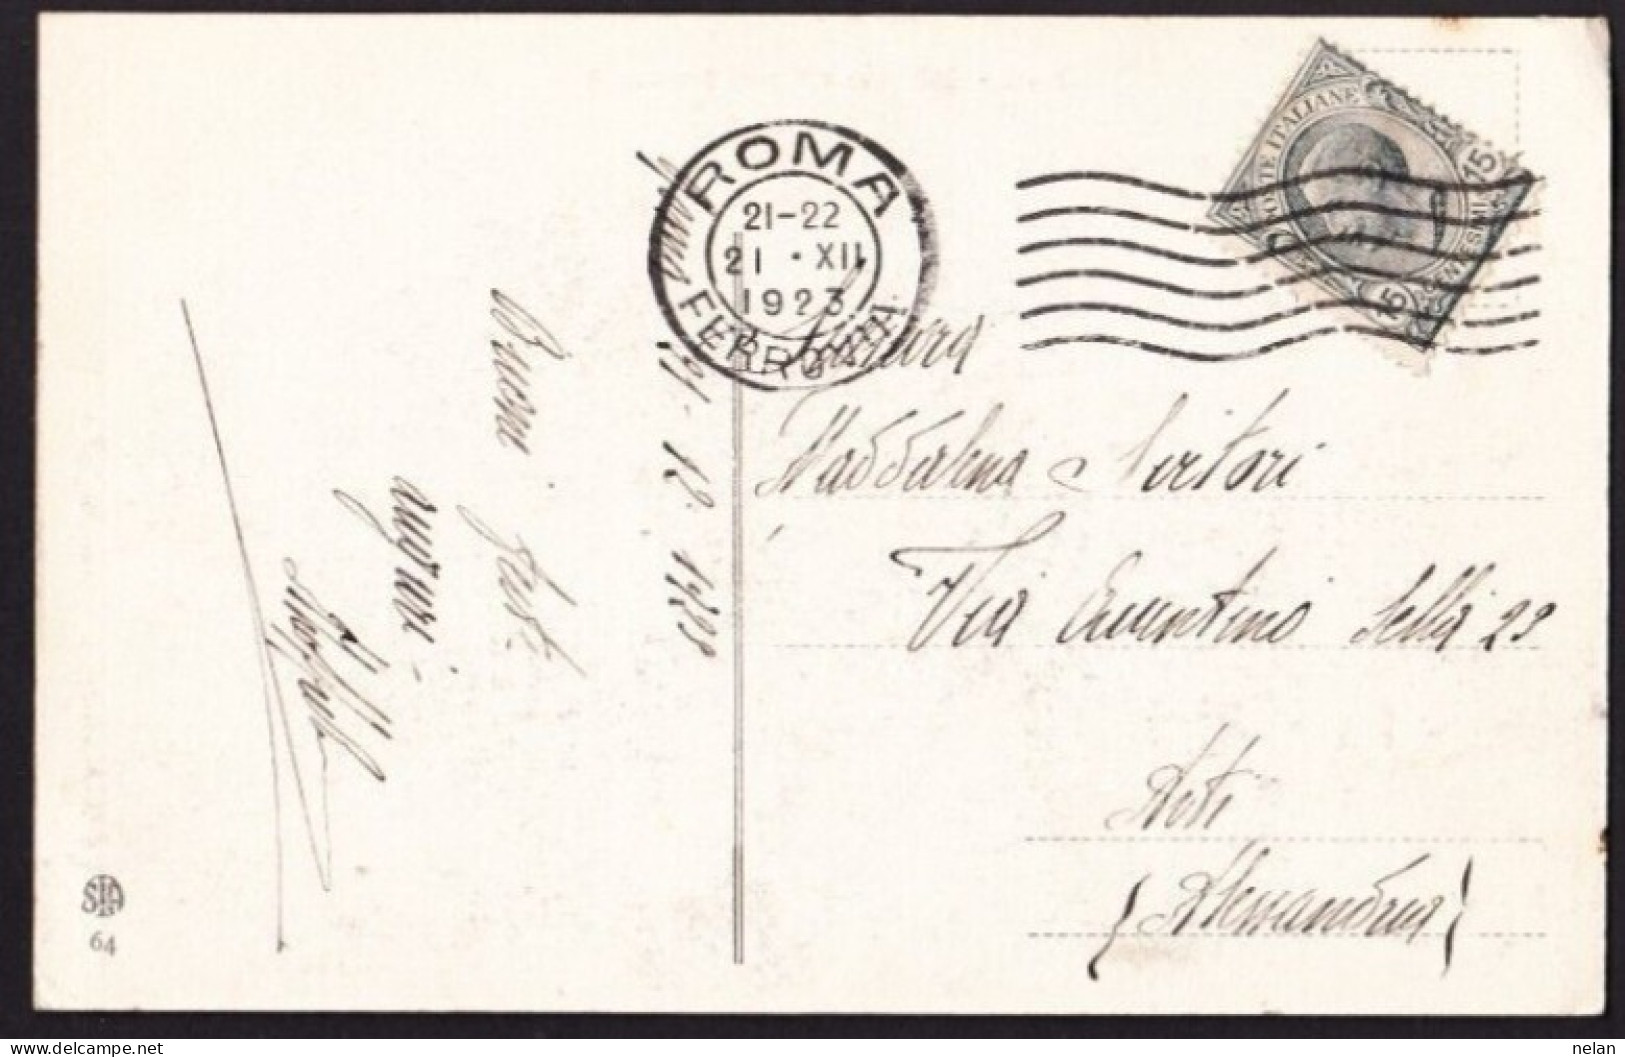 ROMA
21-22
21 · XII
1923
FERROVIA
POSTE ITALIANE
15
CENTESIMI
15
21. 12. 1923
Buone feste
auguri
Signora
Maddalena Sertori
Via Quintino Sella 23
Asti
(Alessandria)
SIA
64
nelan